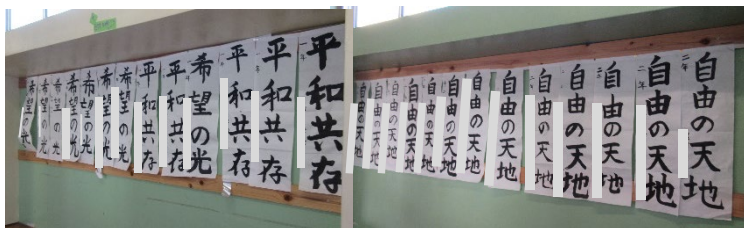 一年
平和共存
平和共存
平和共存
希望の光
平和共存
平和共存
希望の光
希望の光
希望の光
希望の光
希望の光
希望の光
希望の光
二年
自由の天地
二年
自由の天地
自由の天地
自由の天地
二年
自由の天地
自由の天地
自由の天地
自由の天地
自由の天地
自由の天地
自由の天地
自由の天地
自由の天地